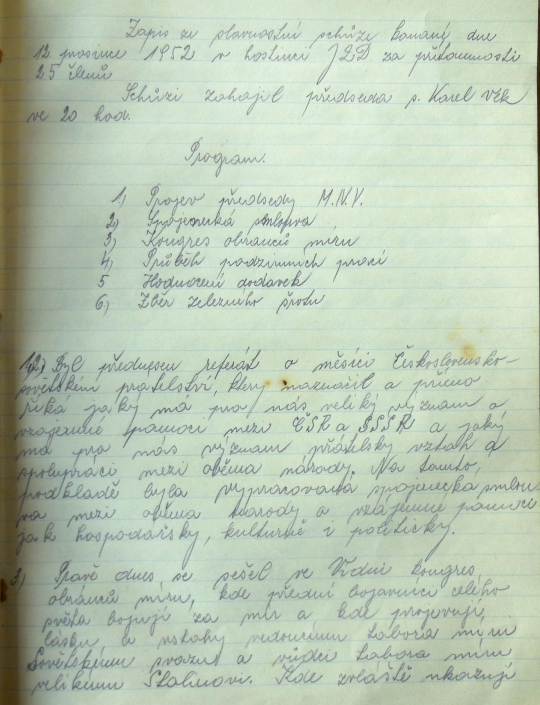 Zápis ze slavnostní schůze konané dne
12 prosince 1952 v hostinci JZD za přítomnosti
25 členů
Schůzi zahájil předseda s. Karel Vlk
ve 20 hod.
Program.
1) Projev předsedy M.N.V.
2) Spojenecká smlouva
3) Kongres obránců míru
4) Průběh podzimních prací
5 Hodnocení dodávek
6) Zběr železného šrotu
1,2) Byl přednesen referát o měsíci Československo-
sovětském pratelství, který naznačil a přímo
říká jaký má pro nás veliký význam o
vzájemné pomoci mezi ČSR a SSSR a jaký
má pro nás význam přátelský vztah a
spolupráci mezi oběma národy. Na tomto,
podkladě byla vypracovaná spojenecká smlou-
va mezi oběma narody o vzájemné pomoci
jak hospodářsky, kulturně i politicky.
3) Pravě dnes se sešel ve Vídni kongres,
obránců míru, kde přední bojovníci celého
světa bojují za mír a kde projevují,
lásku a vztahy vedoucímu táboru míru
Sovětskému svazu a vůdci tabora míru
velikému Stalinovi. Kde zvláště ukazují